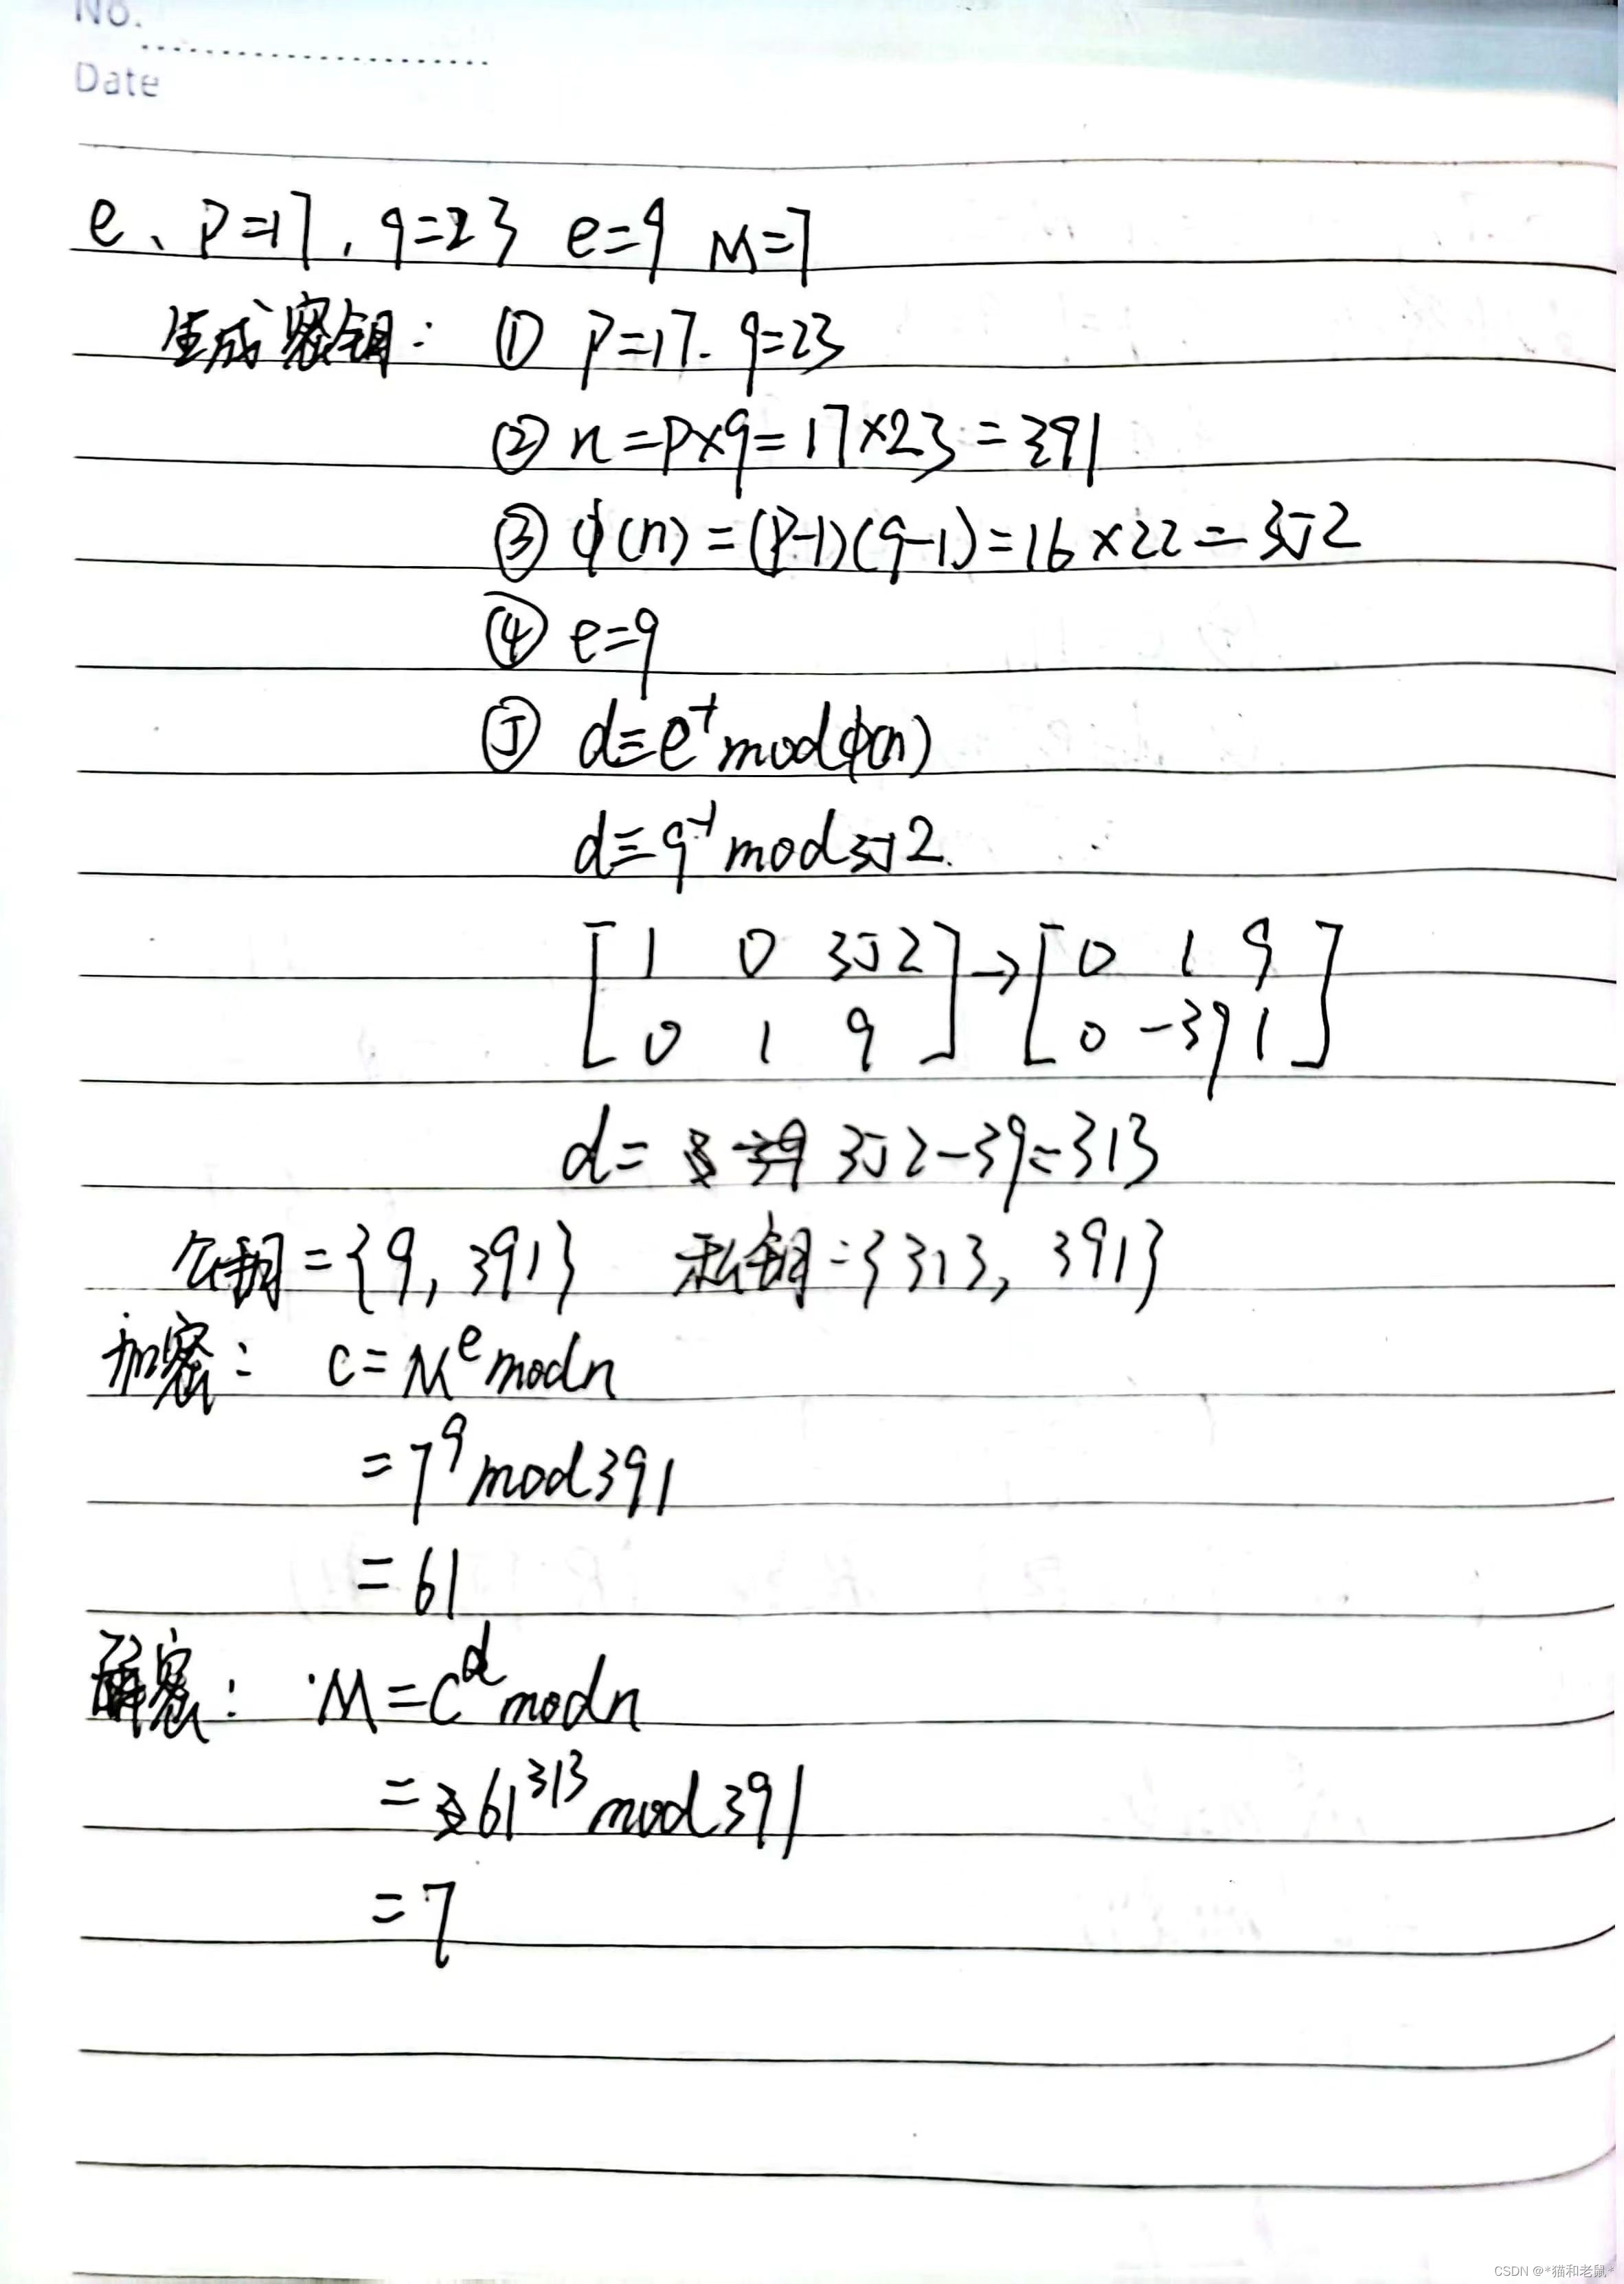 No.
Date
e、P=17，q=23 e=9 M=7
生成密钥：① P=17. q=23
② n=p×q=17×23=391
③ φ(n)=(P-1)(q-1)=16×22=352
④ e=9
⑤ d≡e⁻¹modφ(n)
d≡9⁻¹mod352.
[1 0 352]→[0 1 9]
[0 1 9] [0 -39 1]
d= 352-39=313
公钥={9, 391} 私钥={313, 391}
加密：C=Mᵉmodn
=7⁹mod391
=61
解密：M=Cᵈmodn
=61³¹³mod391
=7
CSDN @*猫和老鼠*